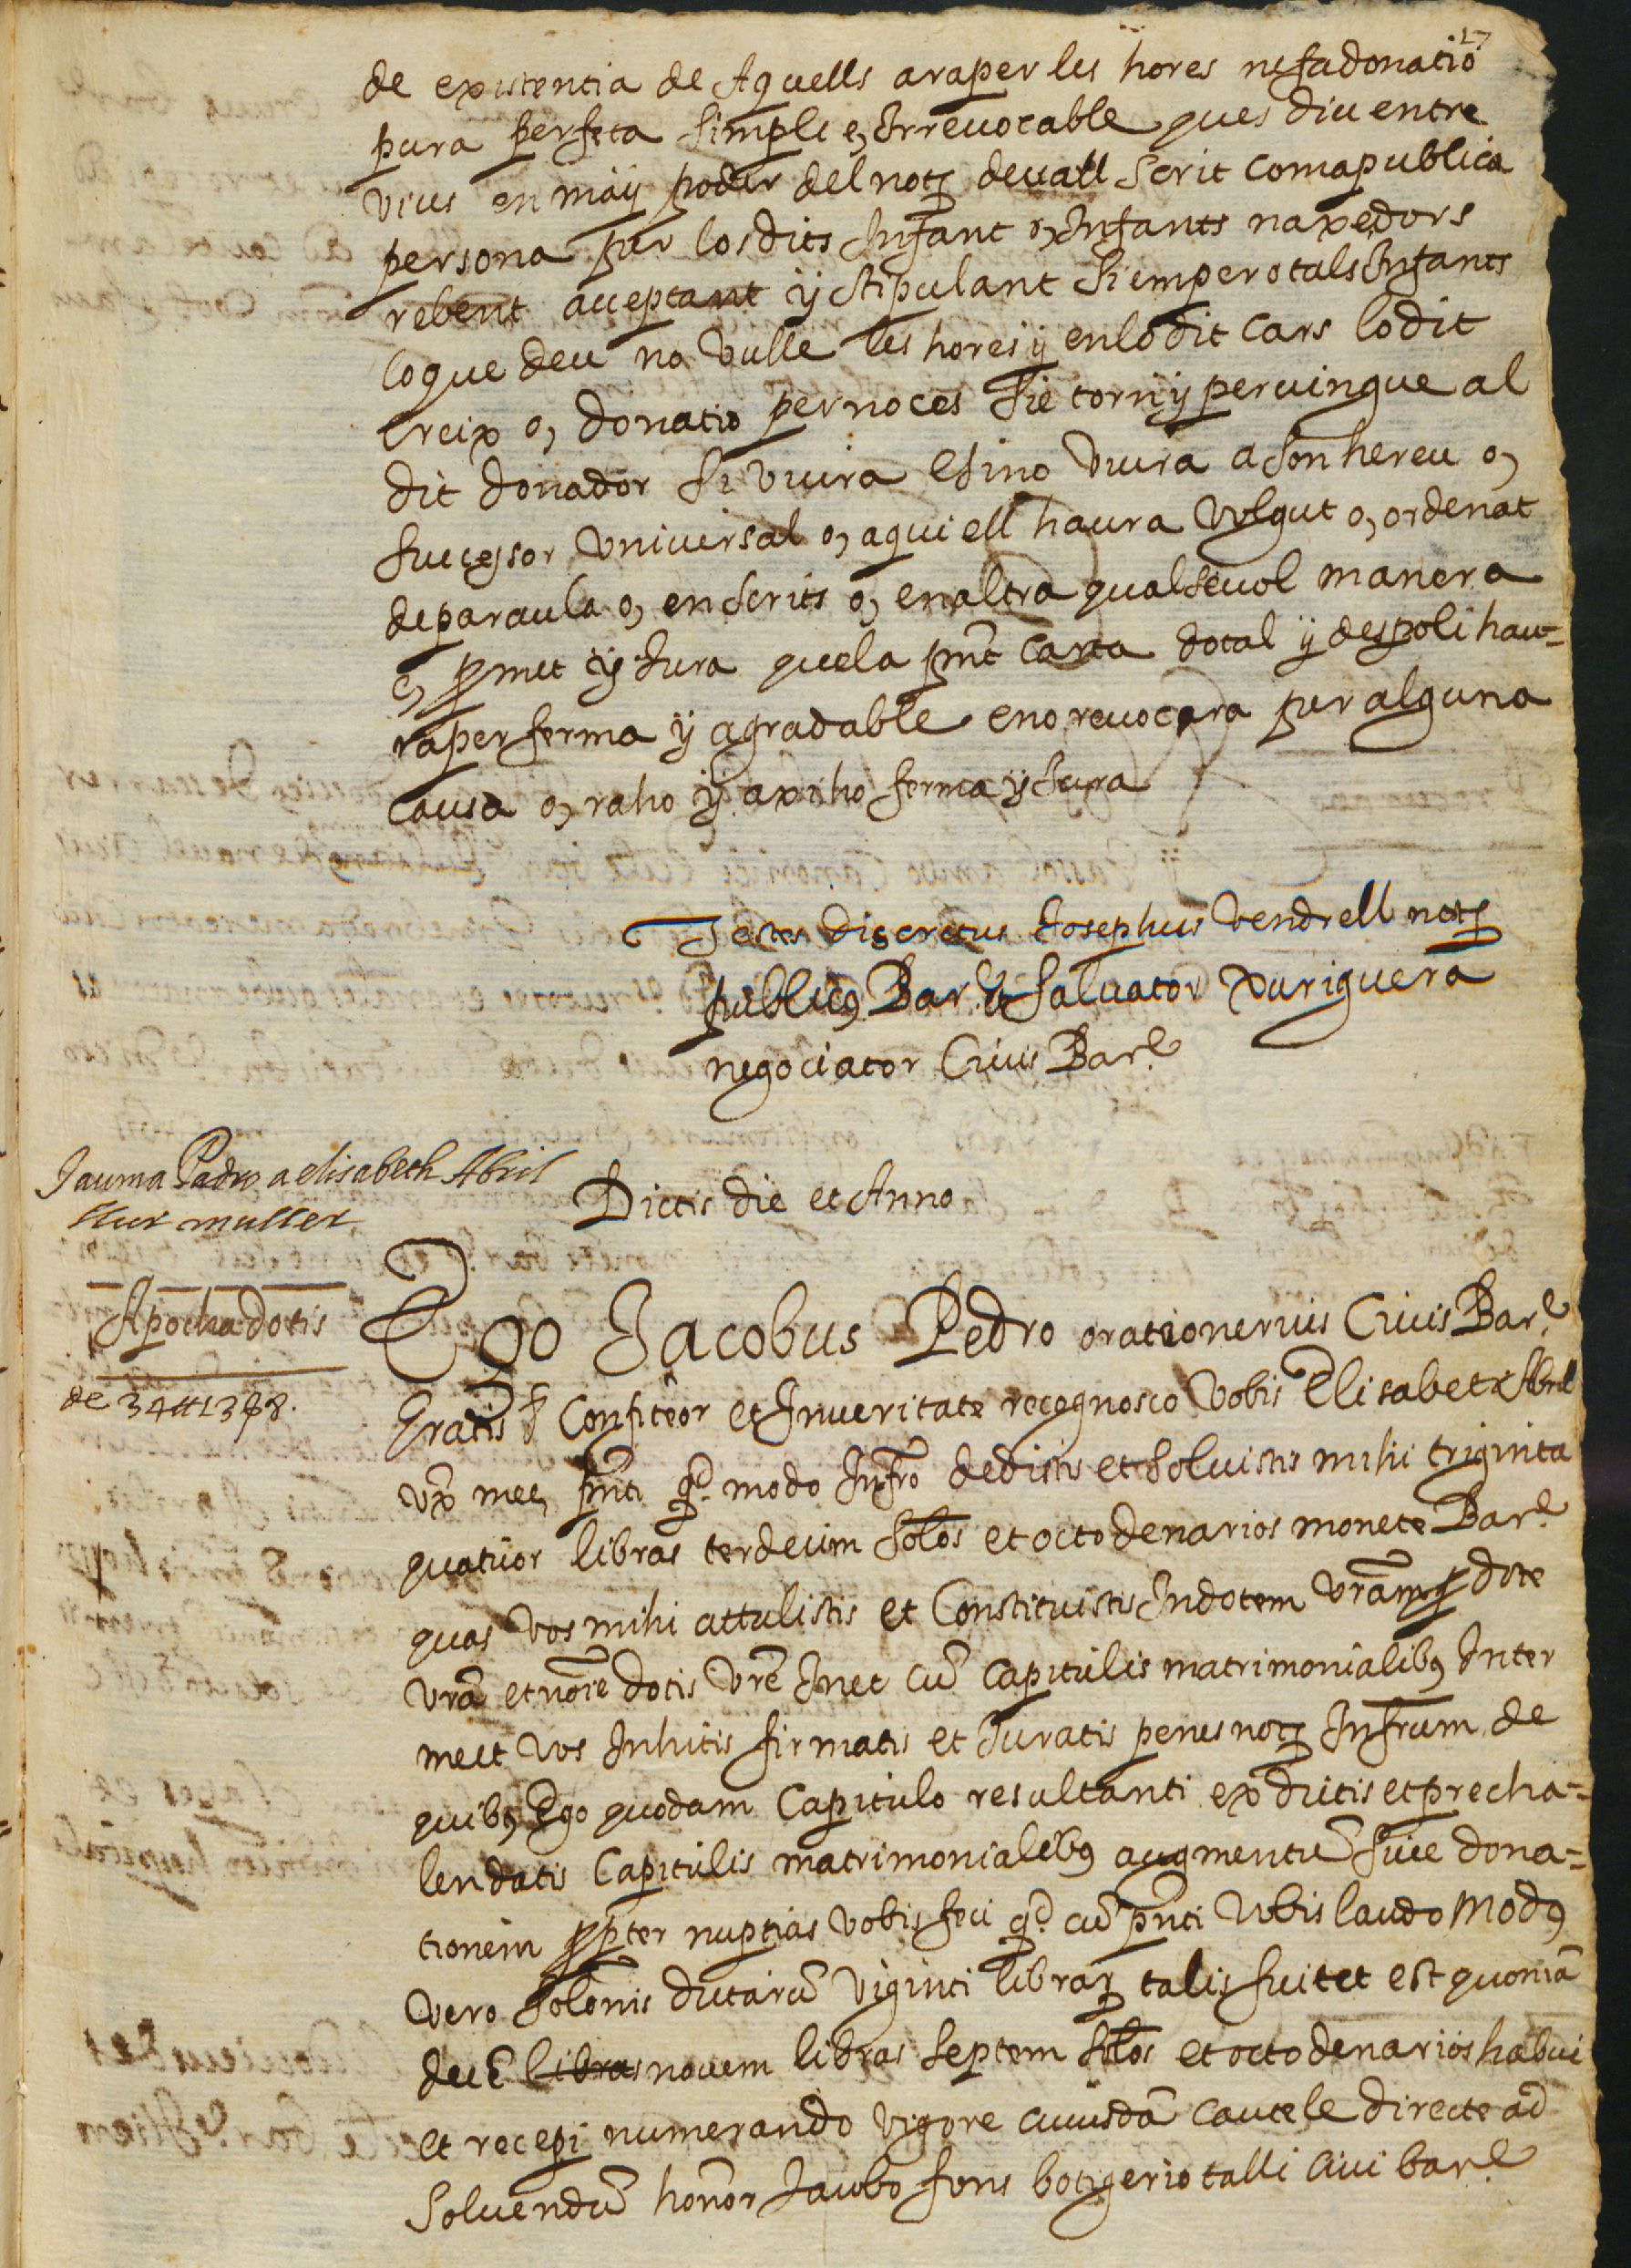 17
de existentia de Aquells araper les hores nefadonatio
pura perfeta simple e, Irreuocable ques diu entre
vius en máÿ poder del notͫ deuall scrit comapublica
persona per losdits Infant o, Infants naxedors
rebent acceptant ÿ stipulant Si empero tals Infants
loque deu no vulle les hores ÿ enlodit cars lodit
Creix o, donatio pernoces sie torn ÿ peruingue al
dit donador si viura esino viura asonhereu o,
successor vniuersal o, aquiell haura volgut o, ordenat
deparaula o, enscrits o, enaltra qualseuol manera
e, ꝓmet ÿ Jura quela pñt carta dotal ÿ despoli hau=
raper ferma ÿ agradable enoreuocara per alguna
causa o, raho ÿ axiho ferma ÿ Jura
Testes discretus Josephus Vendrell notͫ
publicꝰ Barᵉ & Saluator Xuriguera
negociator Ciuis Barᵉ
Jauma Padro a elisabeth Abril
sur muller
Dictis die et Anno
Apocha dotis
de 34 ℔ 13 ß 8.
Ego Jacobus Pedro orationerius Ciuis Barᵉ
Gratis & Confiteor et Inueritate recognosco Vobis Elisabet Abril
vx̃ mee, pñti qᵈ modo Infrõ dedistis et soluistis mihi triginta
quatuor libras terdecim solos et octo denarios monete Barᵉ
quas vos mihi attulistis et Constituistis Indotem vrãm ꝓ dote
vrã et noĩe dotis vrẽ Inet cũ capitulis matrimonialibꝰ Inter
meet vos Inhitis firmatis et Juratis penes notͫ Infrum de
quibꝰ Ego quodam Capitulo resultanti ex dictis et precha=
lendatis Capitulis matrimonialibꝰ augmentũ siue dona=
tionem ꝓpter nuptias vobis feci qᵈ cũ pñti vobis laudo Modꝰ
vero solonis dictarũ viginti librarͫ talis fuitet est quoniã
decẽ libras nouem libras septem solos et octo denarios habui
et recepi numerando vigore cuiusdã cautele directe ad
soluendũ honor Jacobo fons botigerio talli ciui barᵉ